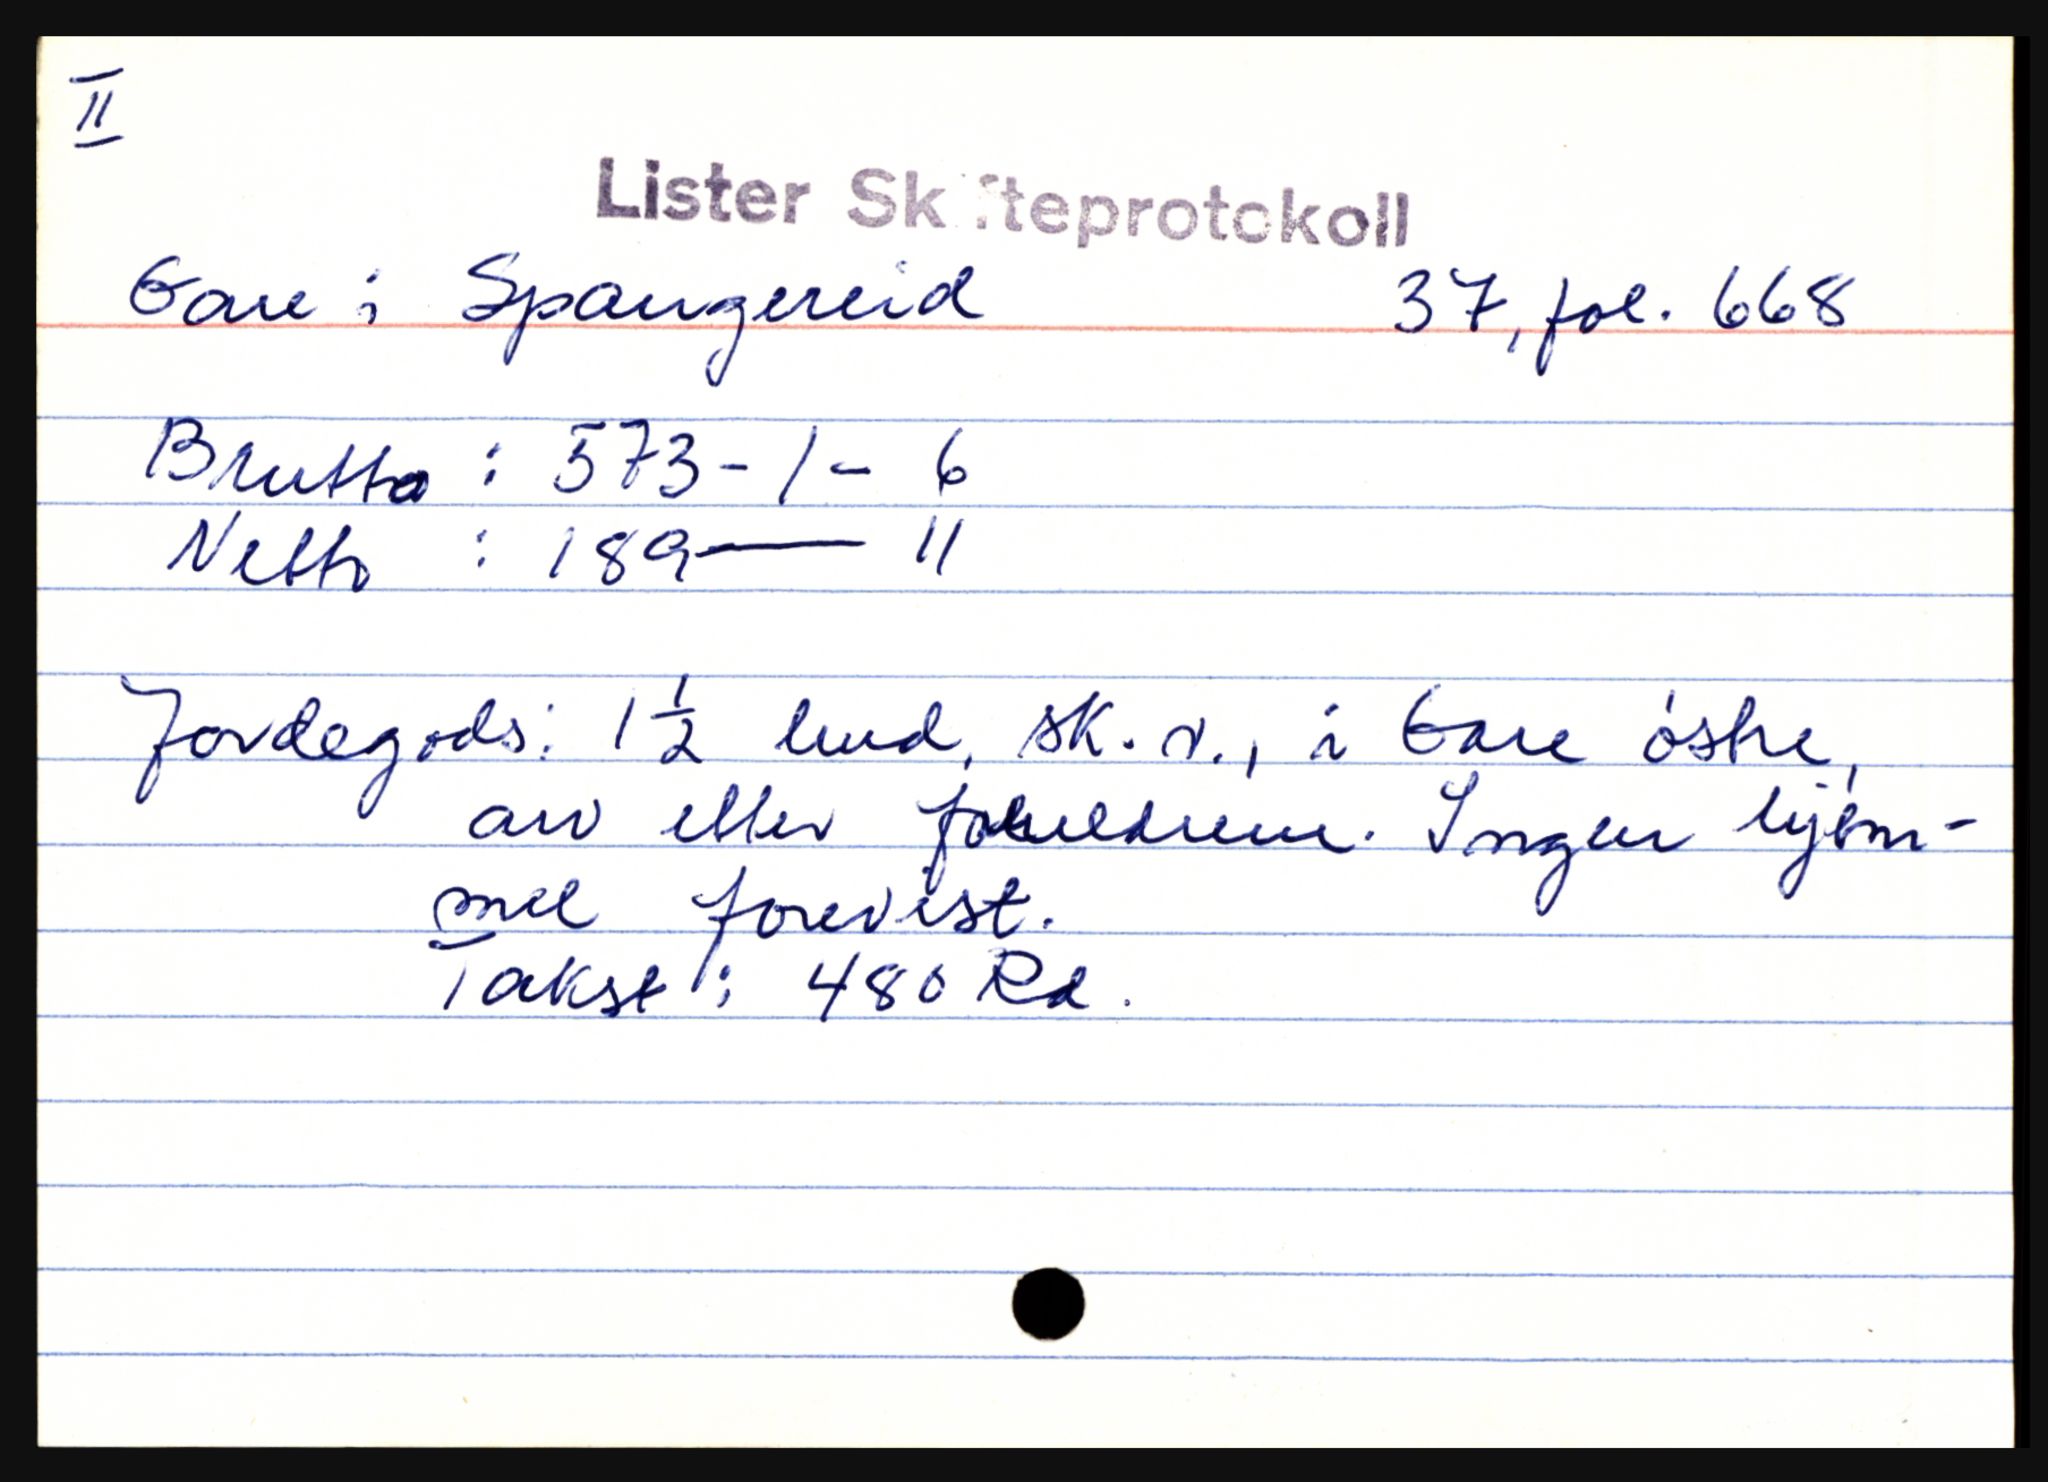 II
Lister Skifteprotokoll
Gare i Spangereid 37, fol. 668
Brutto : 573 - 1 - 6
Netto : 189 — 11
Jordegods: 1 1/2 hud, sk. v., i Gare östre,
arv etter foreldrene. Ingen hjem-
mel forevist.
Takst : 480 Rd.